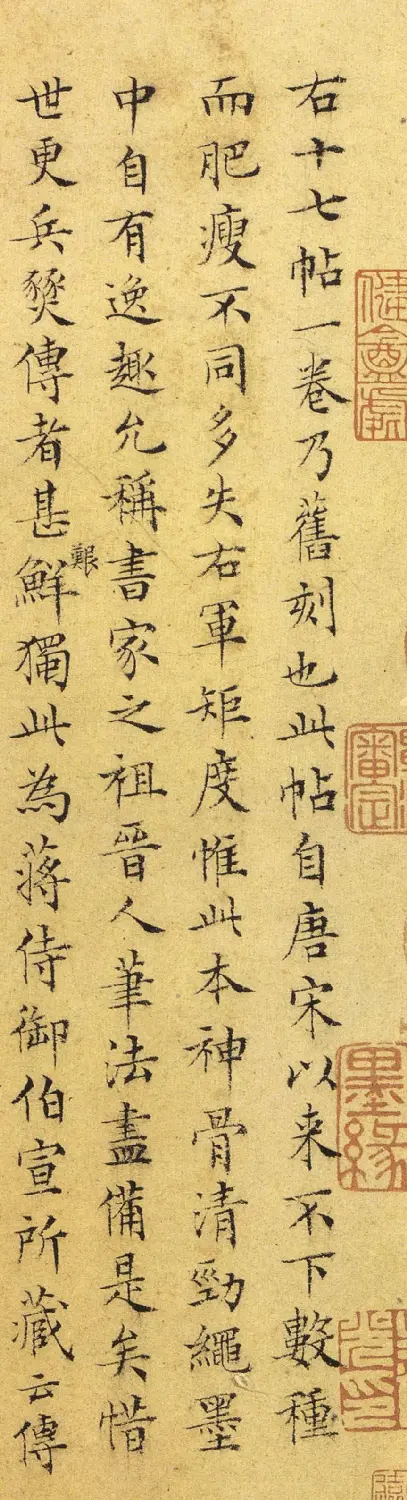 右十七帖一卷乃舊刻也此帖自唐宋以来不下數種
而肥瘦不同多失右軍矩度惟此本神骨清勁繩墨
中自有逸趣允稱書家之祖晉人筆法盡備是矣惜
世更兵燹傳者甚鮮獨此為蔣侍御伯宣所藏云傳
艱
審定
墨緣